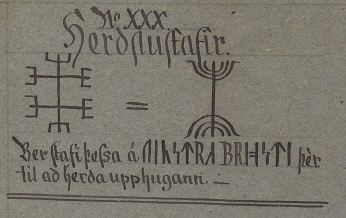 No XXX.
Herdſluſtafir.
=
Ber ſtafi þeſsa á þèr
til ad herda upphugann. —